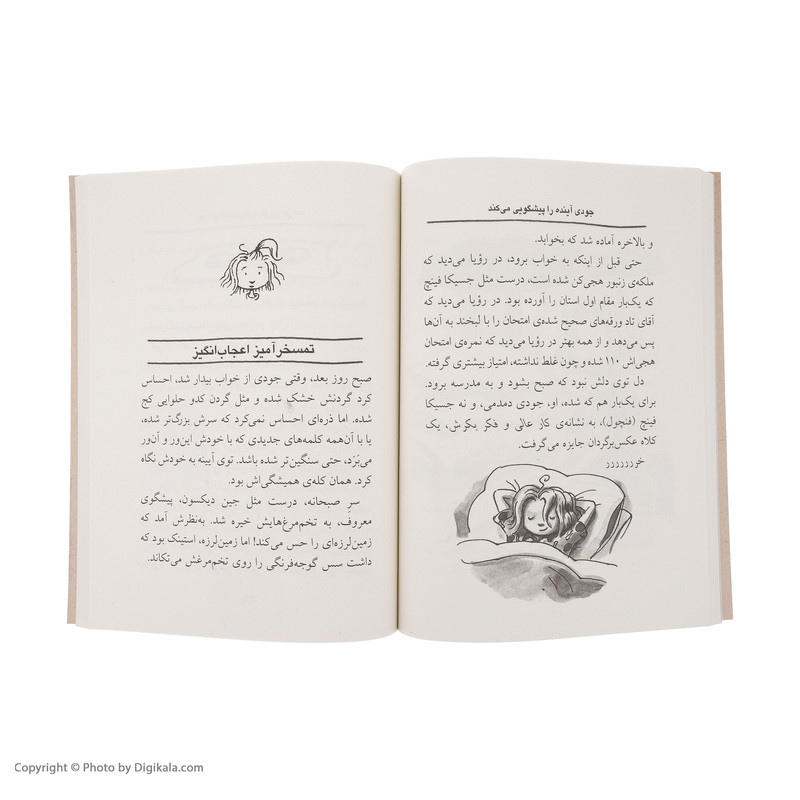 جودی آینده را پیشگویی می‌کند
و بالاخره آماده شد که بخوابد.
حتی قبل از اینکه به خواب برود، در رؤیا می‌دید که
ملکه‌ی زنبور هجی‌کن شده است، درست مثل جسیکا فینچ
که یک‌بار مقام اول استان را آورده بود. در رؤیا می‌دید که
آقای تاد ورقه‌های صحیح شده‌ی امتحان را با لبخند به آن‌ها
پس می‌دهد و از همه بهتر در رؤیا می‌دید که نمره‌ی امتحان
هجی‌اش ۱۱۰ شده و چون غلط نداشته، امتیاز بیشتری گرفته.
دل توی دلش نبود که صبح بشود و به مدرسه برود.
برای یک‌بار هم که شده، او، جودی دمدمی، و نه جسیکا
فینچ (فنچول)، به نشانه‌ی کار عالی و فکر بکرش، یک
کلاه عکس‌برگردان جایزه می‌گرفت.
خررررررر
تمسخرآمیز اعجاب‌انگیز
صبح روز بعد، وقتی جودی از خواب بیدار شد، احساس
کرد گردنش خشک شده و مثل گردن کدو حلوایی کج
شده. اما ذره‌ای احساس نمی‌کرد که سرش بزرگ‌تر شده،
یا با آن‌همه کلمه‌های جدیدی که با خودش این‌ور و آن‌ور
می‌بَرَد، حتی سنگین‌تر شده باشد. توی آیینه به خودش نگاه
کرد. همان کله‌ی همیشگی‌اش بود.
سرِ صبحانه، درست مثل جین دیکسون، پیشگوی
معروف، به تخم‌مرغ‌هایش خیره شد. به‌نظرش آمد که
زمین‌لرزه‌ای را حس می‌کند! اما زمین‌لرزه، استینک بود که
داشت سس گوجه‌فرنگی را روی تخم‌مرغش می‌تکاند.
Copyright © Photo by Digikala.com